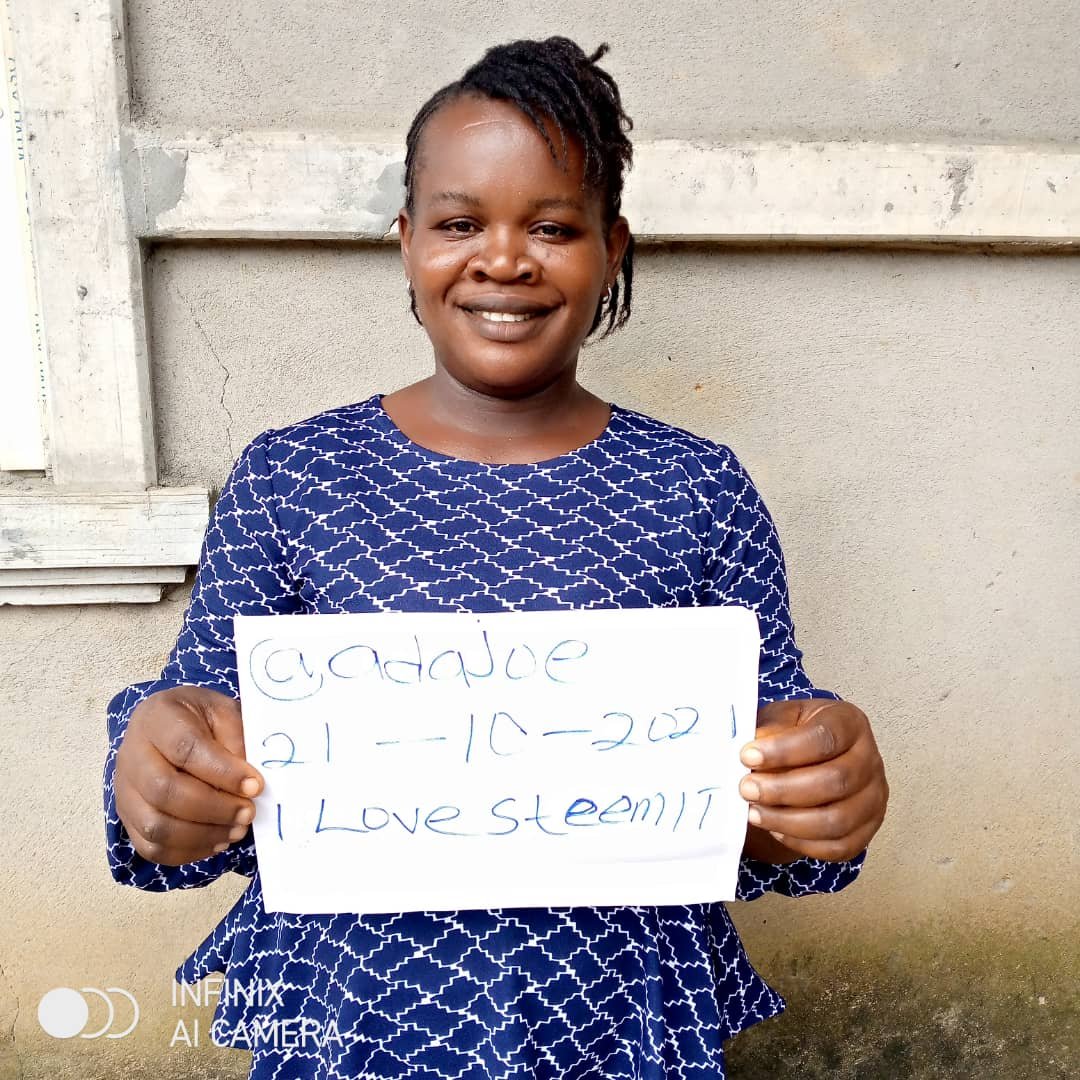 @adaJoe
21-10-2021
I Love steemIT
INFINIX
AI CAMERA